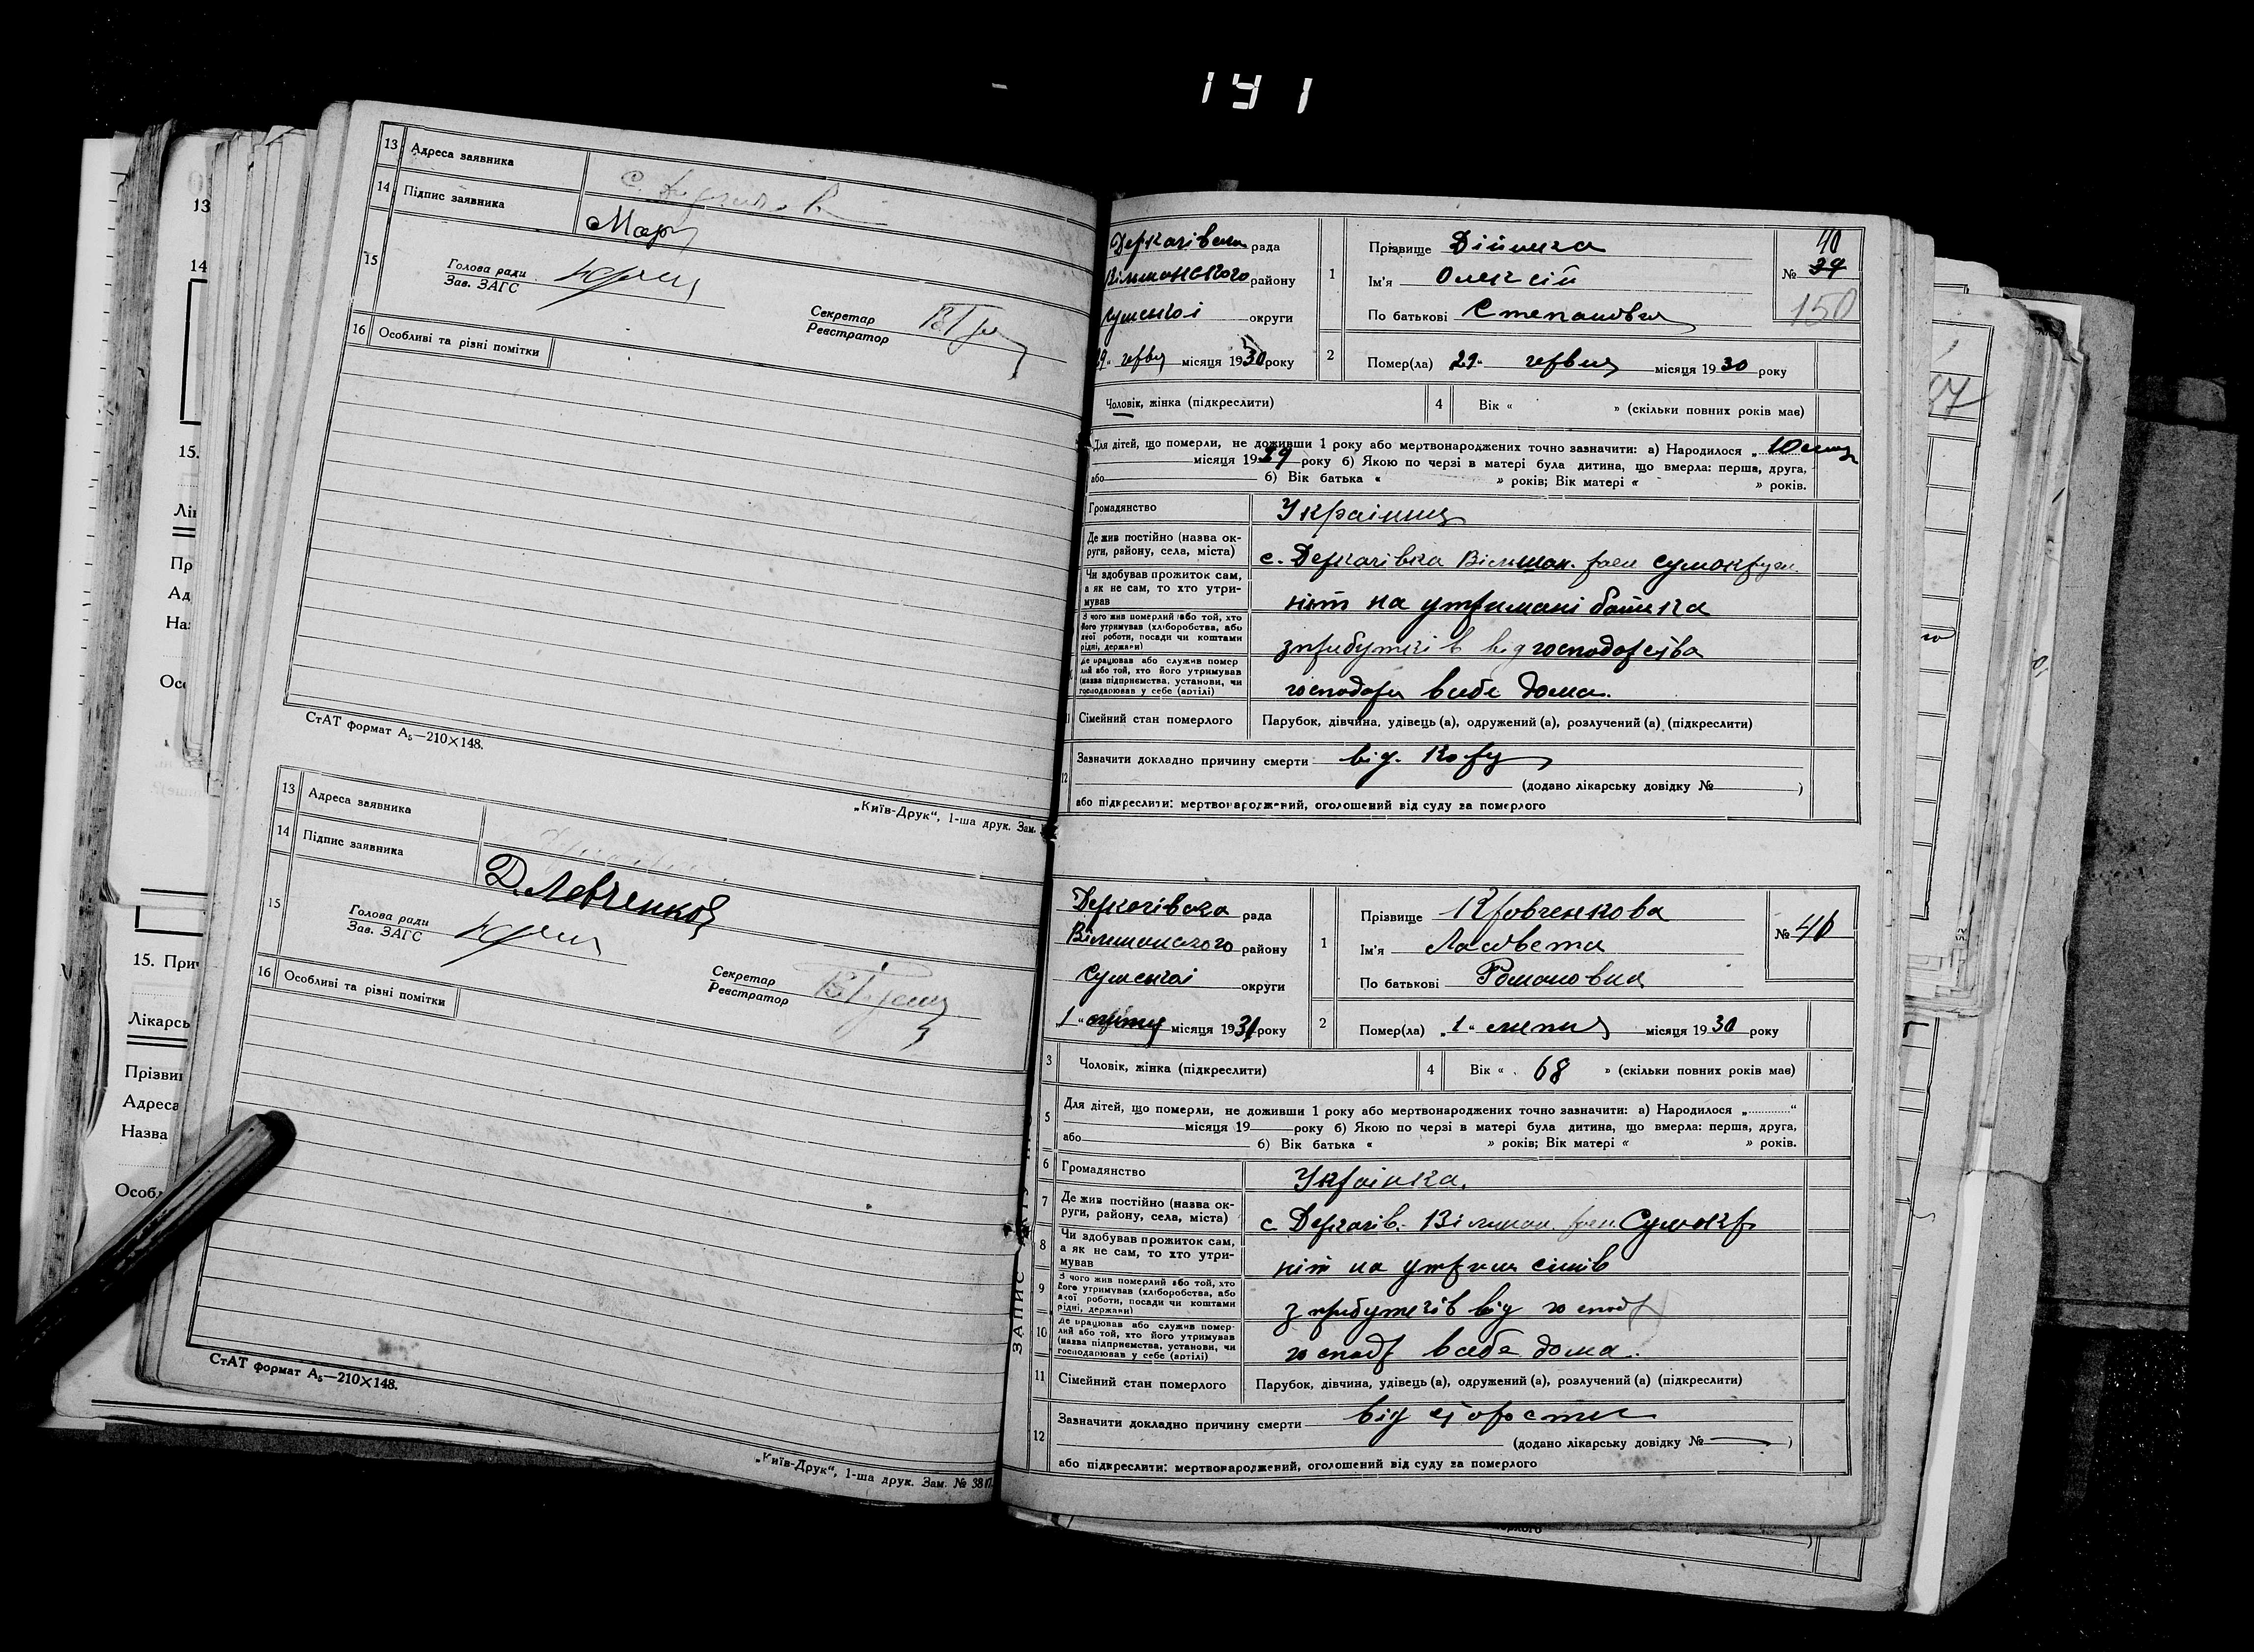 191
13 Адреса заявника
14 Підпис заявника Мар
15
Голова ради
Зав. ЗАГС
Секретар
Реєстратор
16 Особливі та різні помітки
СтАТ формат А₅—210×148.
„Київ-Друк“, 1-ша друк. Зам.
13 Адреса заявника
14 Підпис заявника Д. Левченков
15
Голова ради
Зав. ЗАГС
Секретар
Реєстратор
16 Особливі та різні помітки
СтАТ формат А₅—210×148.
„Київ-Друк“, 1-ша друк. Зам. № 38
13
14
15.
Лі
Пр
Ад
На
Ос
15. При
Лікарсь
Прізви
Адреса
Назва
Особ
Деркачівська рада
Вільшанського району
Сумської округи
29 червн місяця 1930 року
1 Прізвище Дійнека
Ім'я Олексій
По батькові Степанович
40
№ 39
150
2 Помер(ла) 29 червня місяця 1930 року
Чоловік, жінка (підкреслити)
4 Вік « » (скільки повних років має)
Для дітей, що померли, не доживши 1 року або мертвонароджених точно зазначити: а) Народилося „ 10
місяця 1929 року б) Якою по черзі в матері була дитина, що вмерла: перша, друга,
або б) Вік батька « » років; Вік матері « » років.
Громадянство Українец
Де жив постійно (назва округи, району, села, міста) с. Деркачівка Вільшан. раен Сумокруги
Чи здобував прожиток сам, а як не сам, то хто утримував ніт на утримані батька
З чого жив померлий або той, хто його утримував (хліборобства, або якої роботи, посади чи коштами рідні, держави) з прибутків від господарства
Де працював або служив померлий або той, хто його утримував (назва підприємства, установи, чи господарював у себе (артілі) господар всебе дома.
Сімейний стан померлого Парубок, дівчина, удівець (а), одружений (а), розлучений (а) (підкреслити)
12 Зазначити докладно причину смерти від. кору
(додано лікарську довідку № )
або підкреслити: мертвонароджений, оголошений від суду за померлого
ЗАПИС
Деркачівська рада
Вільшанського району
Сумської округи
„1“ місяця 1931 року
1 Прізвище Кровченкова
Ім'я Лисовета
По батькові Романовна
№ 40
2 Помер(ла) „1“ липня місяця 1930 року
3 Чоловік, жінка (підкреслити)
4 Вік « 68 » (скільки повних років має)
5 Для дітей, що померли, не доживши 1 року або мертвонароджених точно зазначити: а) Народилося „ “
місяця 19 року б) Якою по черзі в матері була дитина, що вмерла: перша, друга,
або б) Вік батька « » років; Вік матері « » років.
6 Громадянство Українка.
7 Де жив постійно (назва округи, району, села, міста) с. Деркачів. Вільшан. раен. Сумокр
8 Чи здобував прожиток сам, а як не сам, то хто утримував ніт на утриман синів
9 З чого жив померлий або той, хто його утримував (хліборобства, або якої роботи, посади чи коштами рідні, держави) з прибутків від господ
10 Де працював або служив померлий або той, хто його утримував (назва підприємства, установи, чи господарював у себе (артілі) господ всебе дома.
11 Сімейний стан померлого Парубок, дівчина, удівець (а), одружений (а), розлучений (а) (підкреслити)
12 Зазначити докладно причину смерти від старости
(додано лікарську довідку № )
або підкреслити: мертвонароджений, оголошений від суду за померлого